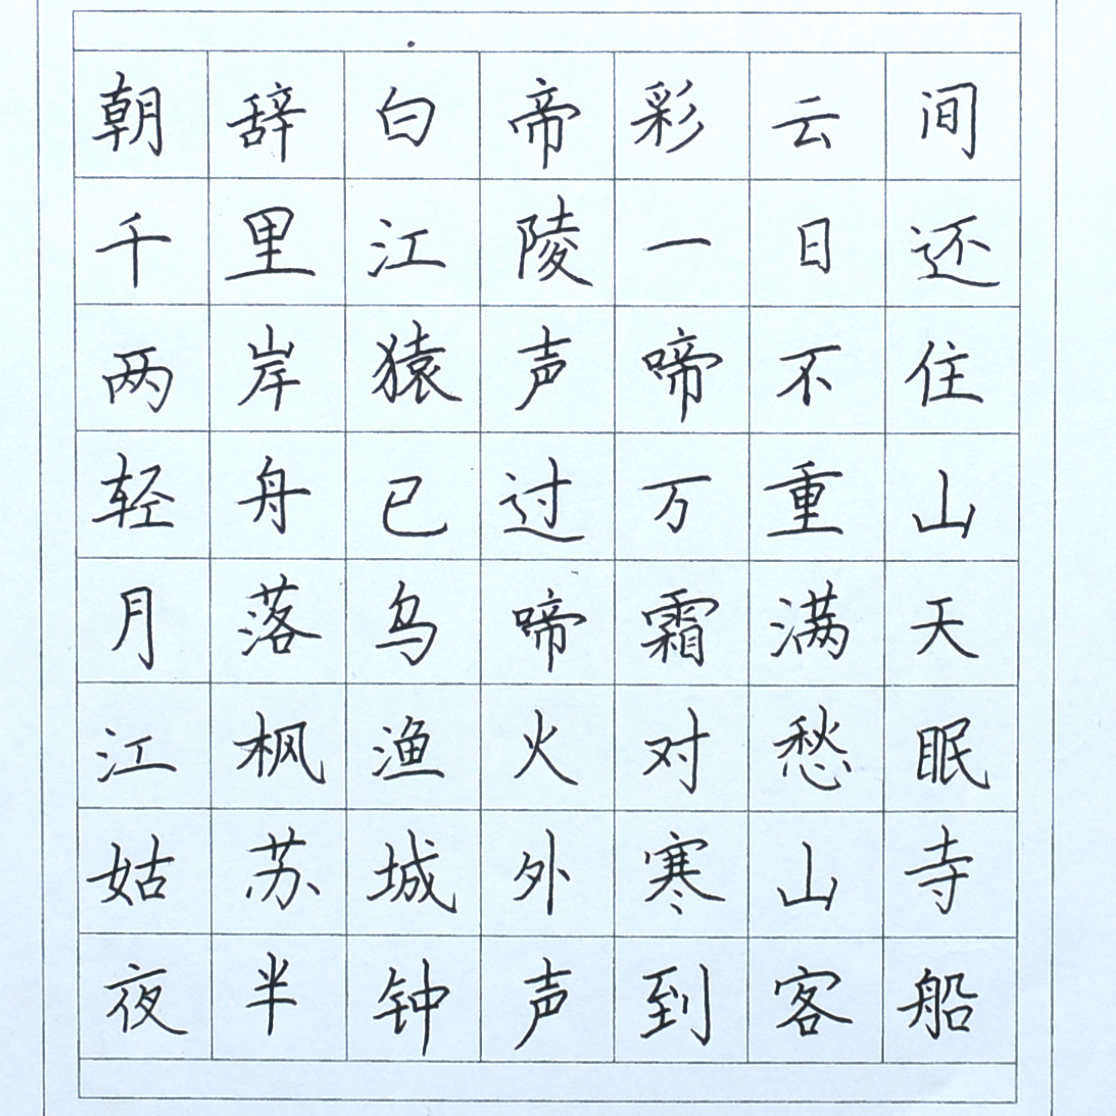 朝辞白帝彩云间
千里江陵一日还
两岸猿声啼不住
轻舟已过万重山
月落乌啼霜满天
江枫渔火对愁眠
姑苏城外寒山寺
夜半钟声到客船